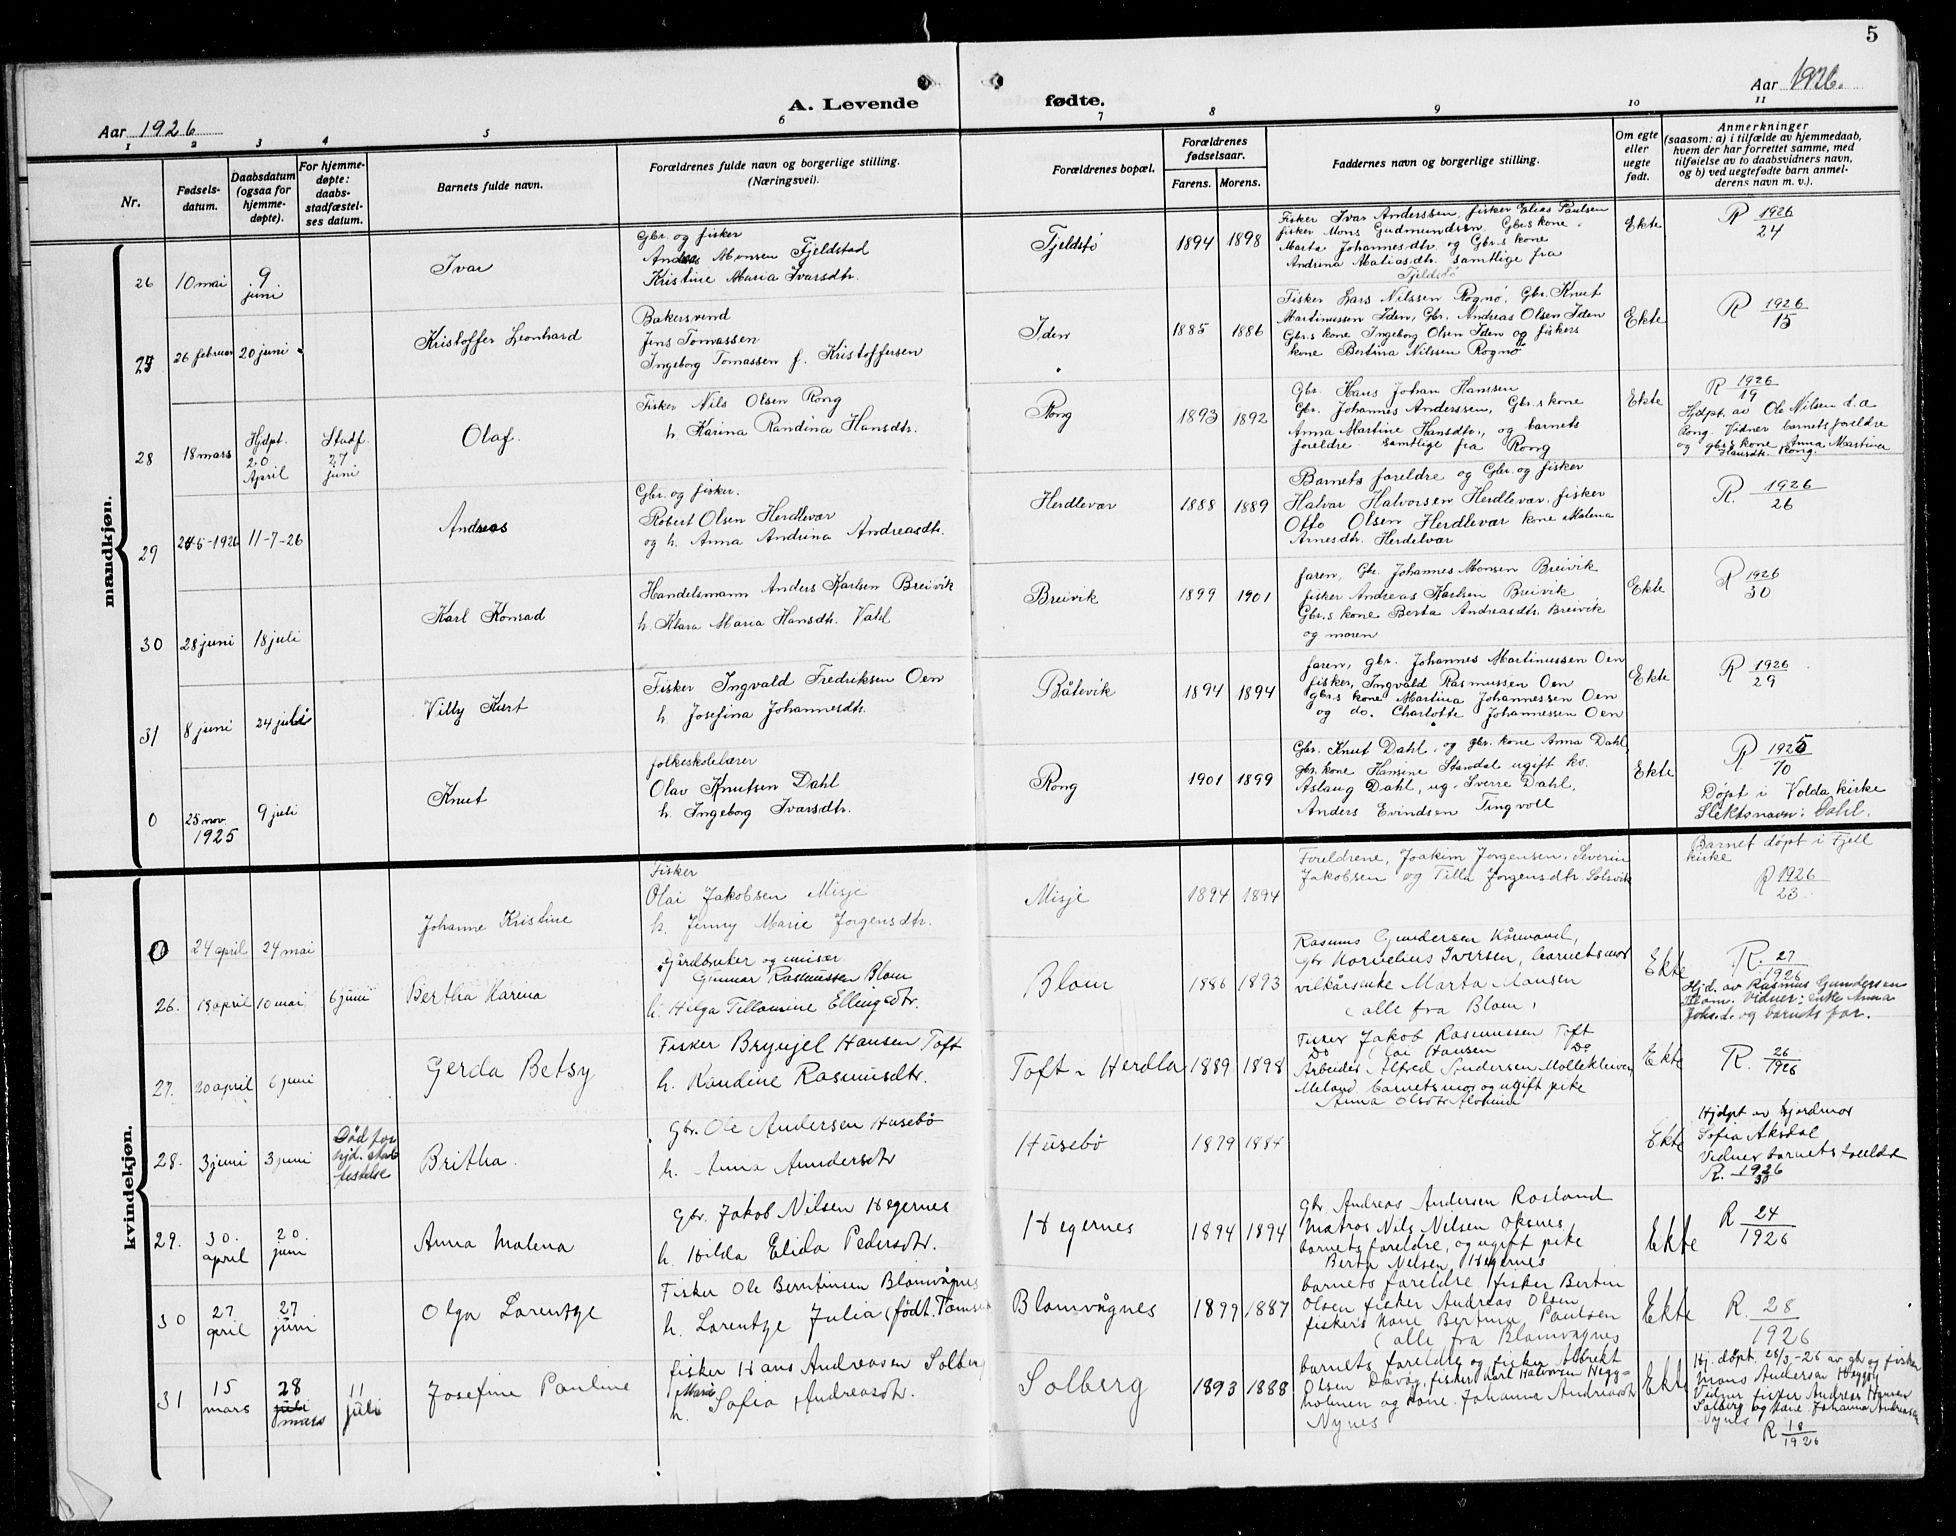 5
Aar 1926
A. Levende fødte.
Aar 1926.
1 2 3 4 5 6 7 8 9 10 11
Nr.
Fødsels-
datum.
Daabsdatum
(ogsaa for
hjemme-
døpte).
For hjemme-
døpte:
daabs-
stadfæstel-
ses datum.
Barnets fulde navn.
Forældrenes fulde navn og borgerlige stilling.
(Næringsvei).
Forældrenes bopæl.
Forældrenes
fødselsaar.
Farens. Morens.
Faddernes navn og borgerlige stilling.
Om egte
eller
uegte
født.
Anmerkninger
(saasom: a) i tilfælde av hjemmedaab,
hvem der har forrettet samme, med
tilføielse av to daabsvidners navn,
og b) ved uegtefødte barn anmel-
derens navn m. v.).
mandkjøn.
26
10 mai
9
juni
Ivar
Gbr. og fisker
Andreas Monsen Fjeldstad
Kristine Maria Ivarsdtr.
Fjeldstø
1894
1898
Fisker Ivar Anderssen, fisker Elias Paulsen
fisker Mons Gudmundsen, Gbrs kone
Marta Johannesdtr. og Gbr.s kone
Andrina Matiasdtr. samtlige fra
Fjeldstø
Ekte
R 1926
24
27
26 februar
20 juni
Kristoffer Leonhard
Bakersvend
Jens Tomassen
Ingeborg Tomassen f. Kristoffersen
Iden
1885
1886
Fisker Lars Nilssen Rognø, Gbr. Knut
Martinussen Iden, Gbr. Andreas Olsen Iden
Gbr.s kone Ingeborg Olsen Iden og fiskers
kone Bertina Nilssen Rognø
Ekte
R 1926
15
28
18 mars
Hjdpt.
20
April
Stadf.
27
juni
Olaf.
Fisker Nils Olsen Rong
h. Karina Randina Hansdtr.
Rong
1893
1892
Gbr. Hans Johan Hanssen
Gbr. Johannes Anderssen, Gbr.s kone
Anna Martine Hansdtr., og barnets
foreldre samtlige fra Rong
Ekte
R 1926
19
Hjdpt. av Ole Nilsen d.a
Rong. Vidner barnets foreldre
og gbr.s kone Anna Martina
Hansdtr. Rong.
29
24-5-1926
11-7-26
Andreas
Gbr. og fisker.
Robert Olsen Herdlevær
og h. Anna Andrina Andreasdtr.
Herdlevær
1888
1889
Barnets foreldre og Gbr. og fisker
Halvar Halvorsen Herdlevær, fisker
Otto Olsen Herdlevær kone Malena
Arnesdtr. Herdelvær
R. 1926
26
30
28 juni
18 juli
Karl Konrad
Handelsmann Anders Karlsen Breivik
h. Klara Maria Hansdtr. Vall
Breivik
1899
1901
faren, Gbr. Johannes Monsen Breivik
fisker Andreas Karlsen Breivik
Gbr.s kone Berta Andreasdtr. Breivik
og moren
Ekte
R 1926
30
31
8 juni
24 juli
Villy Kurt
Fisker Ingvald Fredriksen Oen
h. Josefina Johannesdtr.
Båtevik
1894
1894
faren, gbr. Johannes Martinussen Oen
fisker, Ingvald Rasmussen Oen
gbr.s kone Martina Johannessen Oen
og do. Charlotte Johannessen Oen
Ekte
R 1926
29
0
25 nov.
1925
9 juli
Knut
folkeskolelærer
Olav Knutsen Dahl
h. Ingeborg Ivarsdtr.
Rong
1901
1899
Gbr. Knut Dahl, og gbr. kone Anna Dahl,
gbr. kone Hansine Standal ugift kv.
Aslaug Dahl, ug. Sverre Dahl,
Anders Evindsen Tingvoll
Ekte
R 1925
70
Døpt i Volda kirke
Slektsnavn: Dahl.
kvindekjøn.
0
24 april
24 mai
Johanne Kristine
Fisker
Olai Jakobsen Misje
h. Jenny Marie Jorgensdtr.
Misje
1894
1894
Foreldrene, Joakim Jorgensen, Severin
Jakobsen og Tilla Jorgensdtr. Solsvik
Barnet døpt i Fjell
kirke
R 1926
23.
26.
18 april
10 mai
6 juni
Bertha Karina
Gårdbruker og
Gunnar Rasmussen Blom
h. Helga Tillomine Ellingsdtr.
Blom
1886
1893
Rasmus Gundersen
Gbr Kornelius Iversen, barnets mor
vilkårsenke Marta Monsen
(alle fra Blom)
Ekte
R. 27
1926
Hjd. av Rasmus Gundersen
Blom. Vidner: enke Anna
og barnets far.
27.
20 april
6 juni
Gerda Betsy
Fisker Brynjel Hansen Toft
h. Randine Rasmusdtr.
Toft - Herdla
1889
1898
Fisker Jakob Rasmussen Toft
Do Olai Hansen Do
Arbeider Alfred Sundersen Mollekleiven
Meland barnets mor og ugift pike
Anna Olsdtr
Ekte
R. 26
1926
28.
3 juni
3 juni
Død for
hjd. stad
festelse
Britha.
Gbr. Ole Andersen Husebø
h. Anna Andersdtr
Husebø
1879
1884
Ekte
Hjdpt av Gjordmor
Sofia Aksdal
Vidner barnets foreldre
R. 1926
30
29.
30.
april
20.
juni
Anna Malena
Gbr. Jakob Nilsen Hegernes
h. Hilda Elida Pedersdtr.
Hegernes
1894
1894
Gbr. Andreas Andersen Rosland
Matros Nils Nilsen Oksnes
barnets foreldre, og ugift pike
Berta Nelsen, Hegernes
Ekte
R 24
1926
30
27
april
27
juni
Olga Lorentze
Fisker Ole Berntinsen Blomvågnes
h. Lorentze Julia (født. Tomsen
Blomvågnes
1899
1887
barnets foreldre fisker Bertin
Olsen fisker Andreas Olsen
fiskers kone Bertina Paulsen
(alle fra Blomvågnes
Ekte
R. 28
1926
31
15
mars
28
juli
mars
11
juli
Josefine Pauline
fisker Hans Andreasen Solberg
Marie
h. Sofia Andreasdtr.
Solberg
1893
1888
barnets foreldre og fisker Albrekt
Olsen Dåvøy, fisker Karl Halvorsen Hegg-
holmen og kone Johanna Andreasdtr
Nynes
Ekte
Hj. døpt. 28/3-26 av gbr og fisker
Mons Andersen Heggøy
Vidner fisker Andreas Hansen
Solberg og kone Johanna Andreasdtr
Nynes
R 18
1926